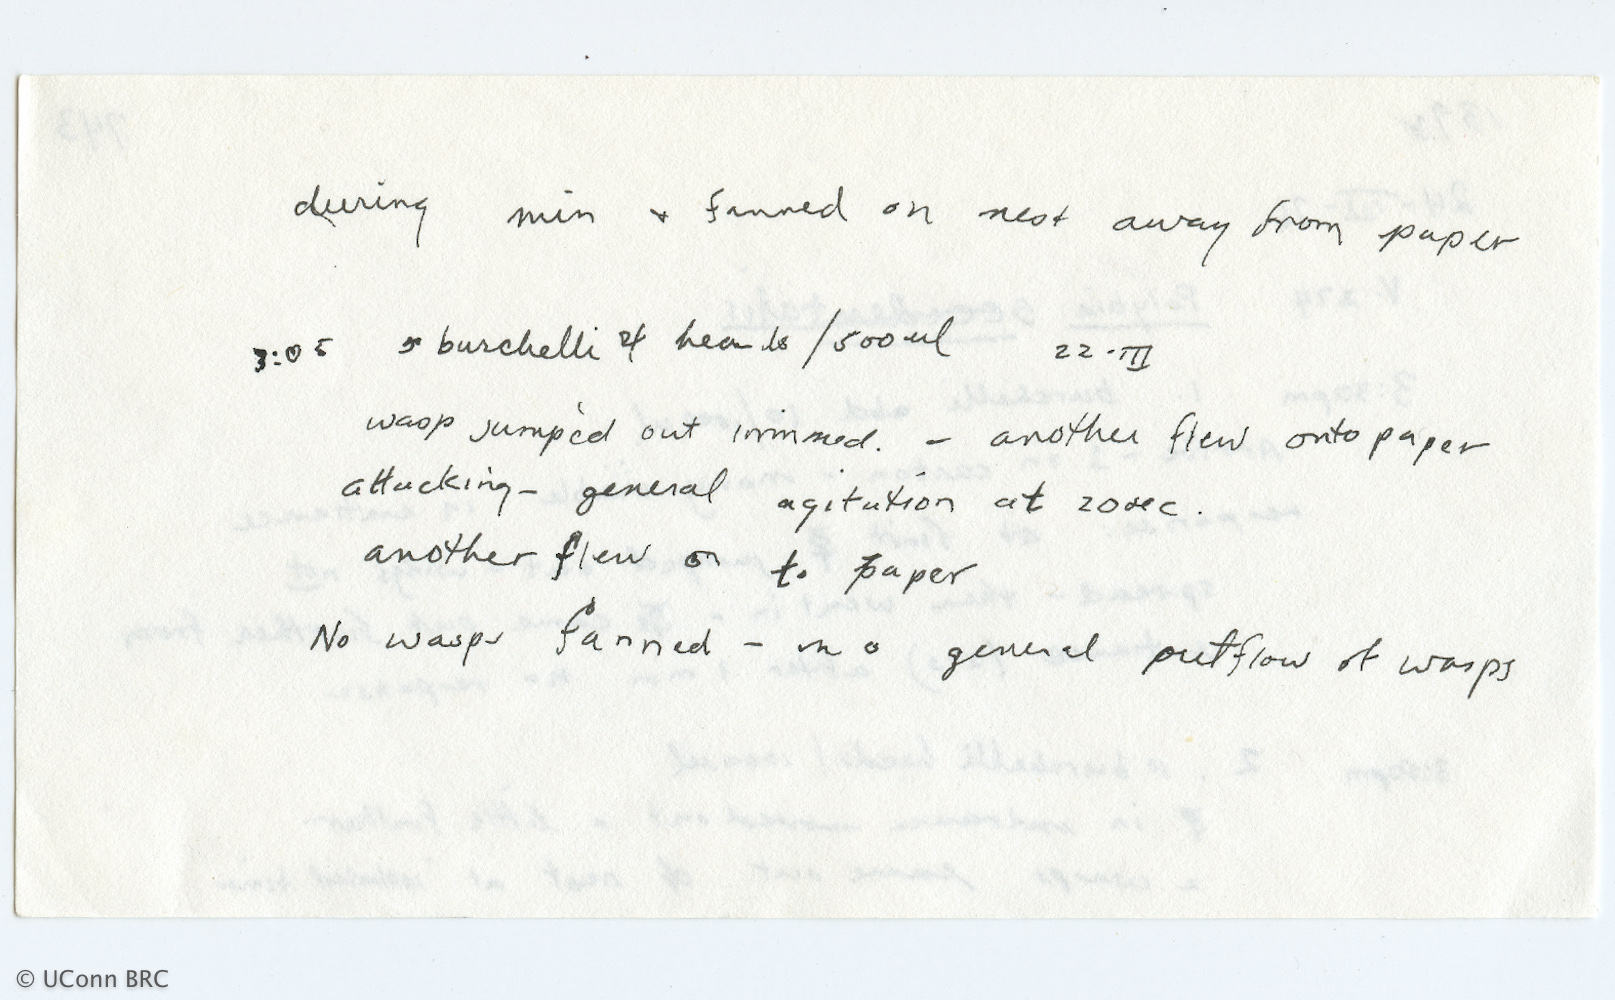 during min + fanned on nest away from paper
3:05 burchelli 4 heads/500ul 22-III
wasp jumped out immed. - another flew onto paper
attacking - general agitation at 20sec.
another flew on to paper
No wasps fanned - no general outflow of wasps
© UConn BRC